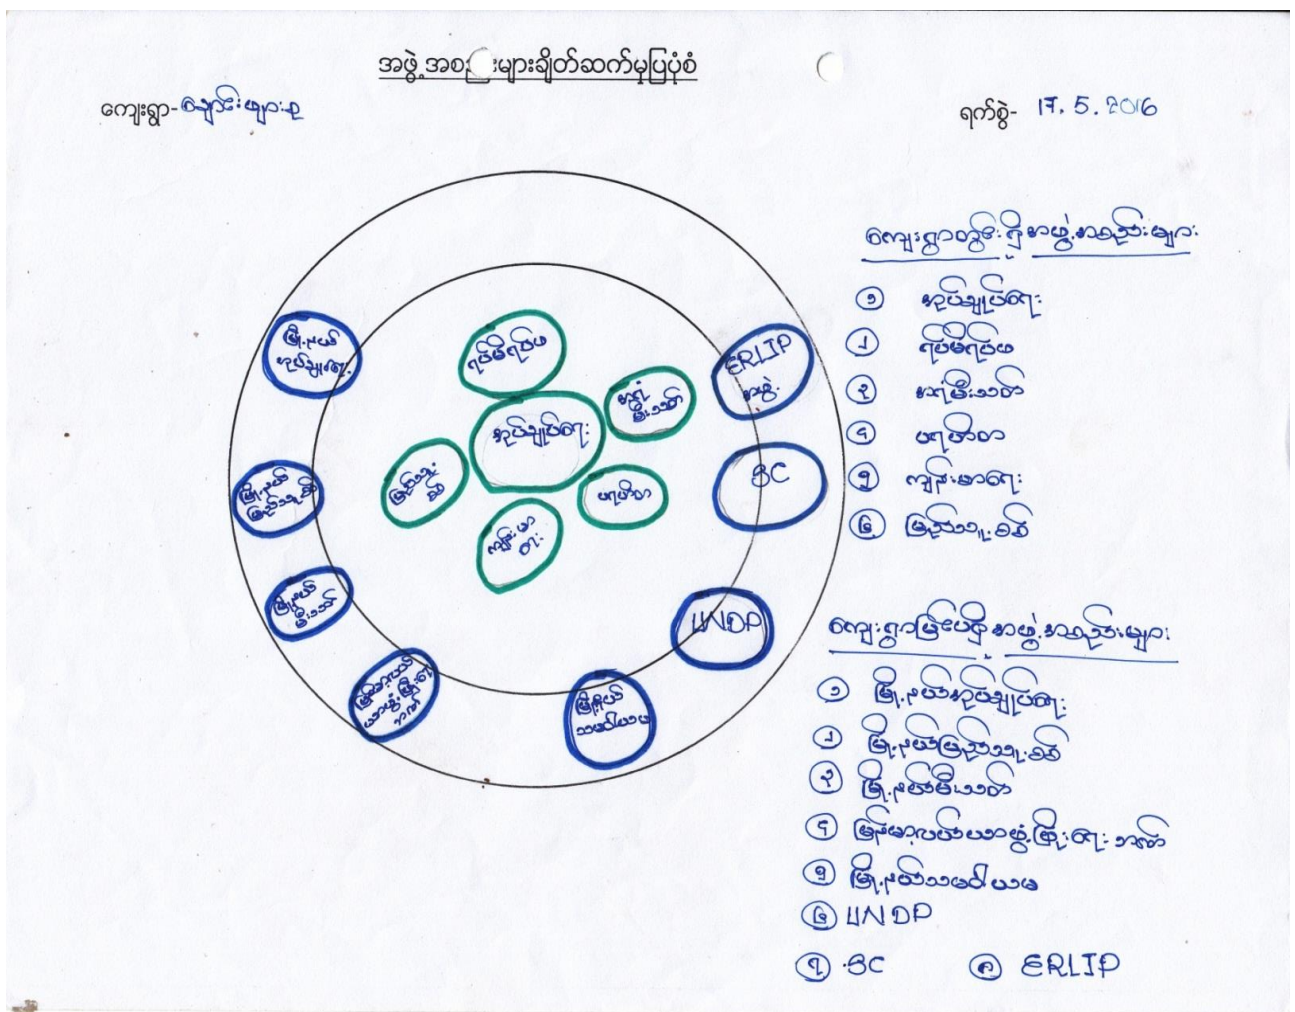 အဖွဲ့အစည်းများချိတ်ဆက်မှုပြပုံစံ
ကျေးရွာ-ချောင်းဖျားစု
ရက်စွဲ- 17.5.2016
မြို့နယ်
အုပ်ချုပ်ရေး
မြို့နယ်
ပြည်သူ့စစ်
မြို့နယ်
မီးသတ်
မြန်မာ့လယ်
ယာဖွံ့ဖြိုးရေး
ဘဏ်
မြို့နယ်
သမဝါယမ
UNDP
SC
ERLIP
အဖွဲ့
ရပ်မိရပ်ဖ
အရံ
မီးသတ်
အုပ်ချုပ်ရေး
ပြည်သူ့
စစ်
ပရဟိတ
ကျန်းမာ
ရေး
ကျေးရွာတွင်းရှိအဖွဲ့အစည်းများ
၁ အုပ်ချုပ်ရေး
၂ ရပ်မိရပ်ဖ
၃ အရံမီးသတ်
၄ ပရဟိတ
၅ ကျန်းမာရေး
၆ ပြည်သူ့စစ်
ကျေးရွာပြင်ပရှိအဖွဲ့အစည်းများ
၁ မြို့နယ်အုပ်ချုပ်ရေး
၂ မြို့နယ်ပြည်သူ့စစ်
၃ မြို့နယ်မီးသတ်
၄ မြန်မာ့လယ်ယာဖွံ့ဖြိုးရေးဘဏ်
၅ မြို့နယ်သမဝါယမ
၆ UNDP
၇ SC ၈ ERLIP